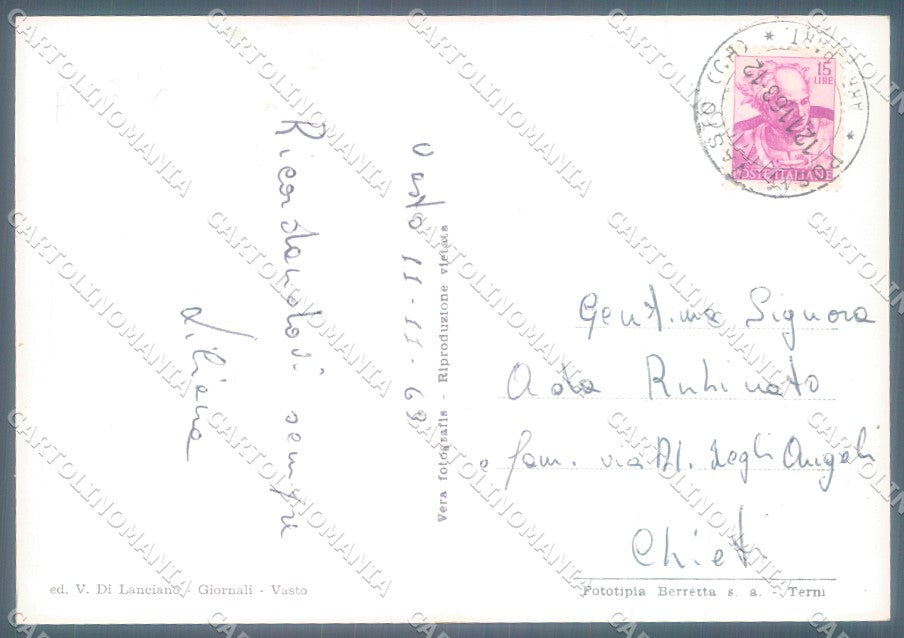 Vasto 11-11-63
Ricordandovi sempre
Liliana
Vera fotografia - Riproduzione vietata
ed. V. Di Lanciano - Giornali - Vasto
15
LIRE
POSTE ITALIANE
12.11.63-12
VASTO (CH)
Gent.ma Signora
Ada Rubinato
e fam. via Al. degli Angeli
Chieti
Fototipia Berretta s. a. - Terni
CARTOLINOMANIA